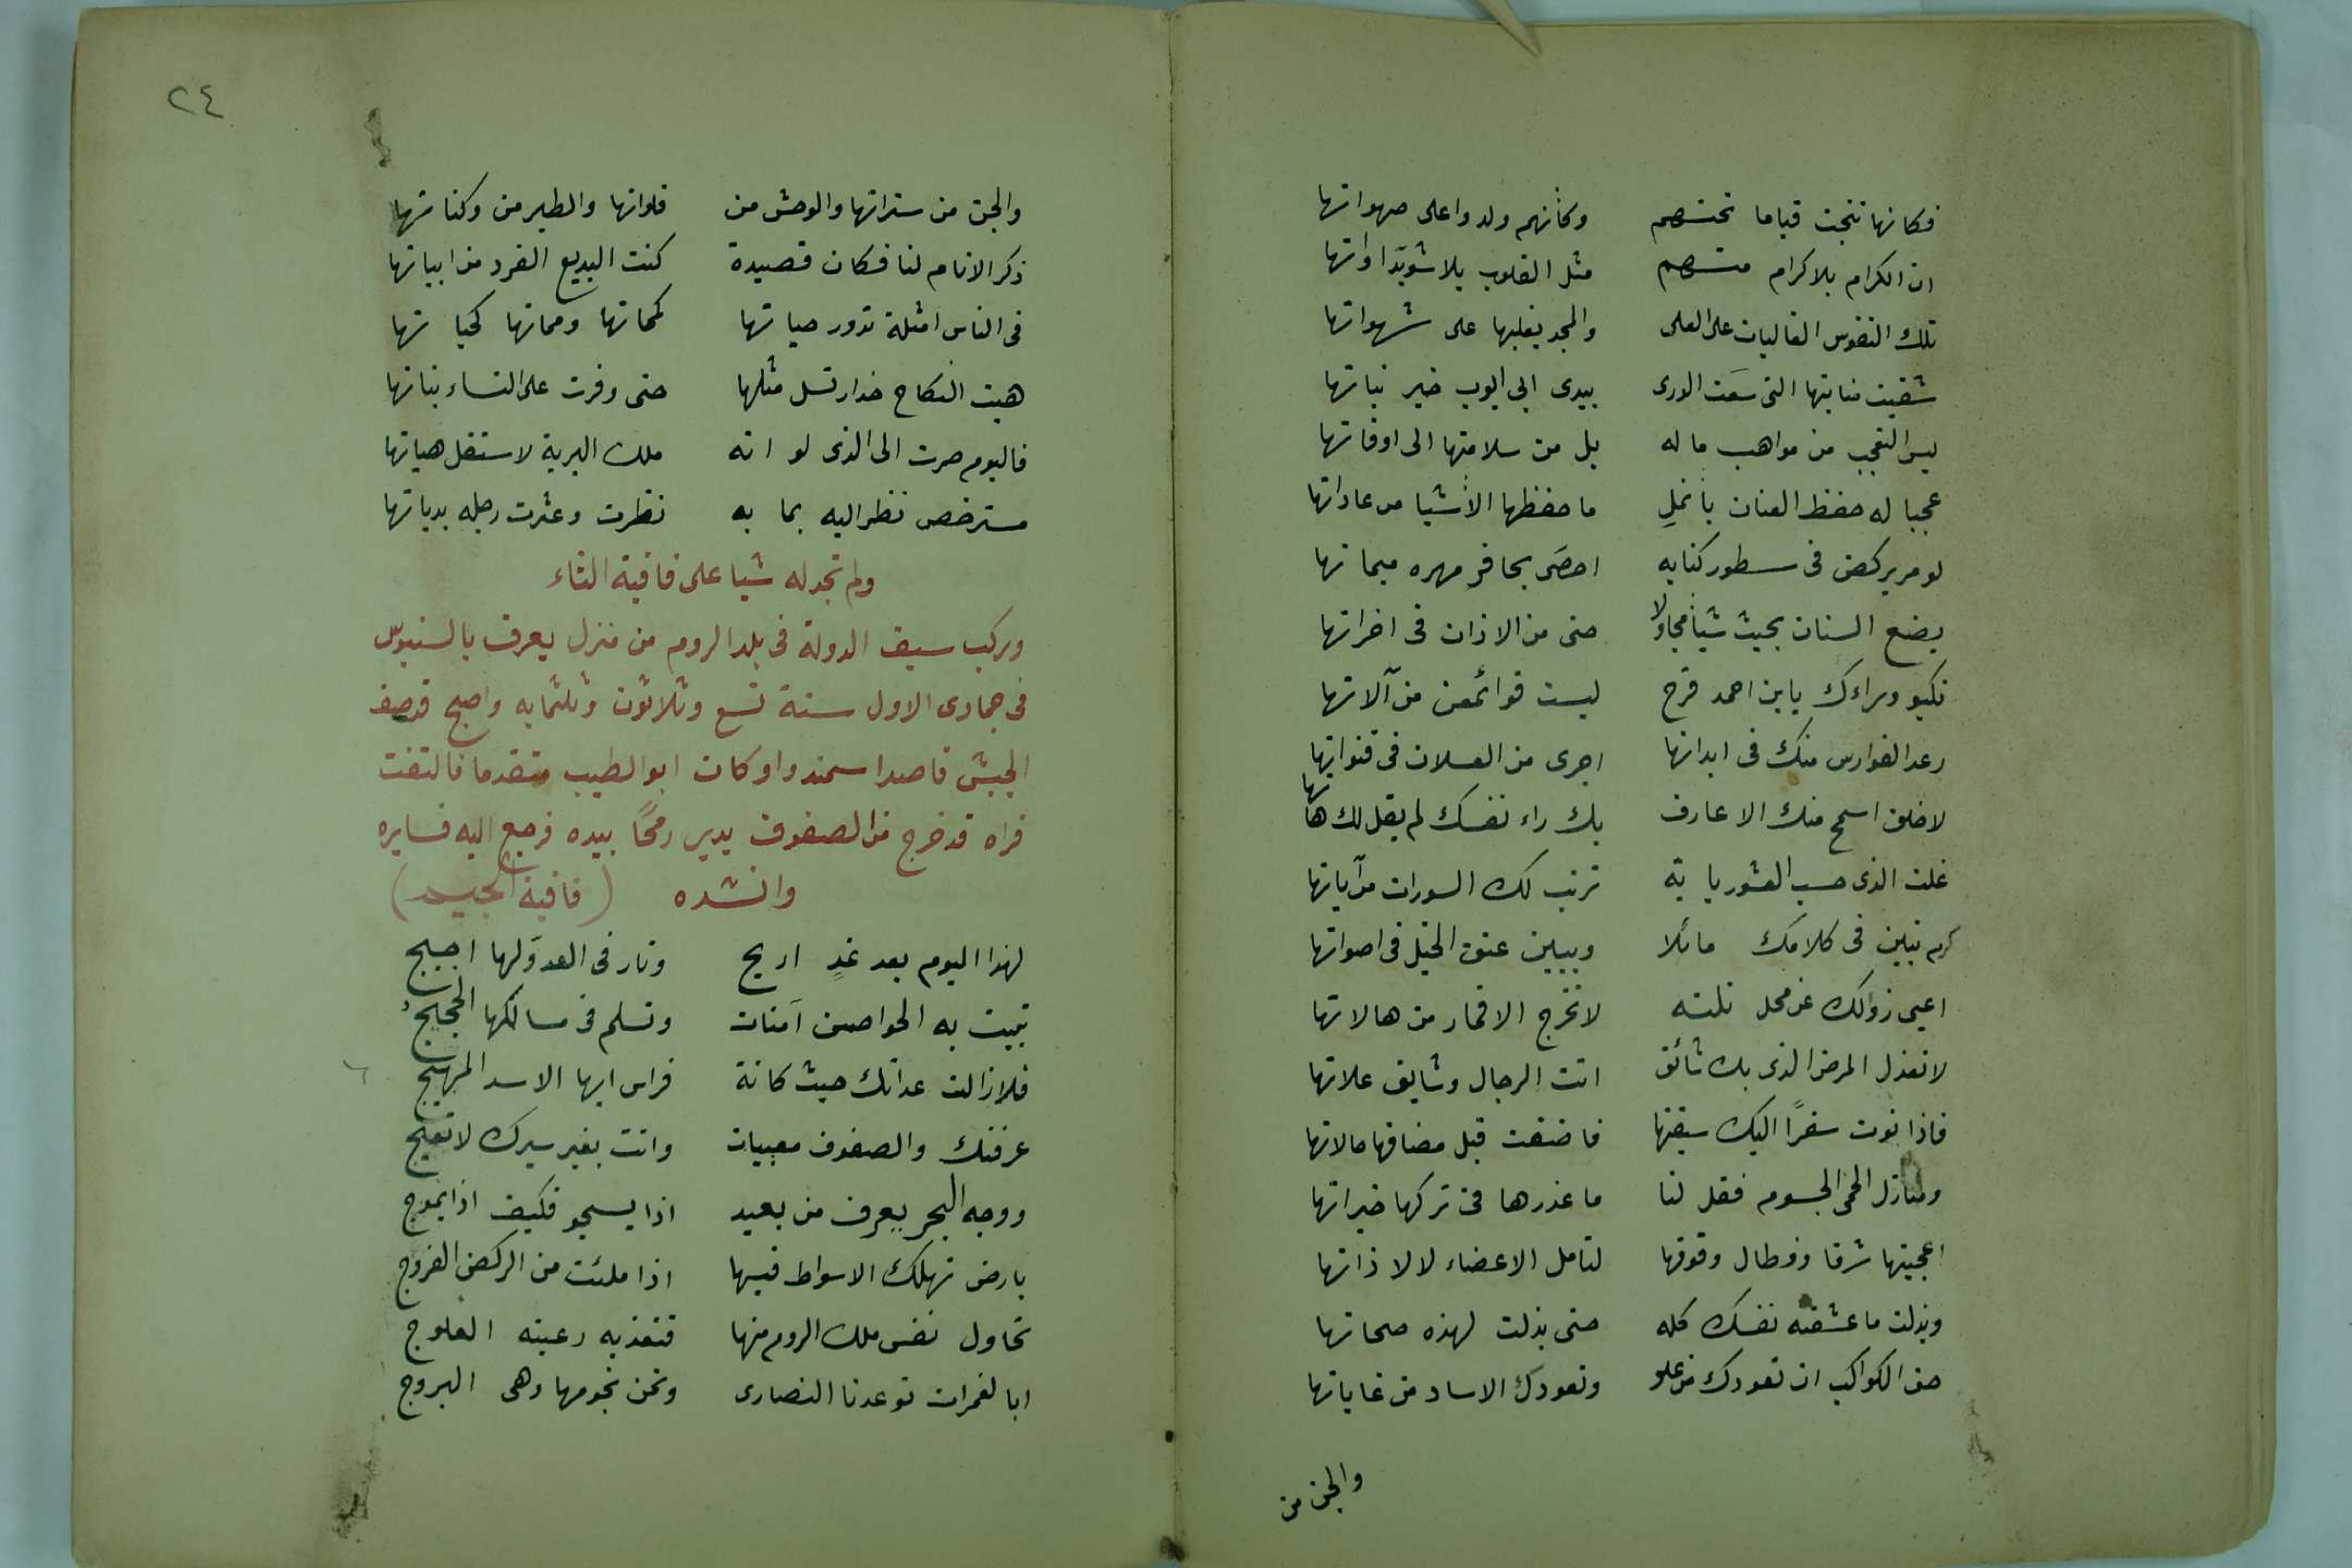 فكانها نتجت قياما تحتهم وكأنهم ولدوا على صهواتها
ان الكرام بلا كرام منهم مثل القلوب بلا سُوَيدَاواتها
تلك النفوس الغالبات على العلى والمجد يغلبها على شهواتها
سقيت منابتها التى سقت الورى بيدى ابى ايوب خير نباتها
ليس التعجب من مواهب ماله بل من سلامتها الى اوقاتها
عجبا له حفظ العنان بأنملٍ ما حفظها الأشيا من عاداتها
لو مر يركض فى سطور كتابه احصَى بحافر مهره ميماتها
يضع السنان بحيث شيأ مجاولا حتى من الاذان فى اخراتها
تكبو وراءك يا بن احمد قرح ليست قوائمهن من آلاتها
رعد الفوارس منك فى ابدانها اجرى من العسلان فى قنواتها
لا خلق اسمح منك الا عارف بك راء نفسك لم يقل لك هاتها
غلت الذى حسب العشور باية ترتب لك السورات من آياتها
كرم تبين فى كلامك ماثلا ويبين عتق الخيل فى اصواتها
اعيى زوالك عن محل نلته لا تخرج الاقمار من هالاتها
لا تعذل المرض الذى بك شائق انت الرجال وشايق علاتها
فاذا نوت سفرًا اليك سبقنها فاضفت قبل مضافها حالاتها
ومنازل الحمى الجسوم فقل لنا ما عذرها فى تركها خيراتها
اعجبتها شرفا فطال وقوفها لتامل الاعضاء لا لا ذاتها
وبذلت ما عشقته نفسك كله حتى بذلت لهذه صحاتها
حق الكواكب ان تعودك من علو وتعودك الاساد من غاباتها
والجن من
٢٤
والجن من ستراتها والوحش من فلواتها والطير من وكناتها
ذكر الانام لنا فكان قصيدة كنت البديع الفرد من ابياتها
فى الناس امثلة تدور حياتها كمماتها ومماتها كحياتها
هبت النكاح حذار نسل مثلها حتى وفرت على النساء بناتها
فاليوم صرت الى الذى لو انه ملك البرية لاستقل هباتها
مسترخص نظر اليه بما به نظرت وعثرت رجله بدياتها
ولم تجد له شيا على قافية الثاء
وركب سيف الدولة فى بلد الروم من منزل يعرف بالسنبوس
فى جمادى الاول سنة تسع وثلاثون وثلثمايه واصبح قد صف
الجيش قاصدا سمندوا وكان ابو الطيب متقدما فالتفت
فراه قد خرج من الصفوف يدير رمحًا بيده فرجع اليه فسايره
وانشده (قافية الجيم)
لهذا اليوم بعد غدٍ اريج ونار فى العدوّ لها اجيج
تبيت به الحواصن آمنات وتسلم فى مسالكها الحجيجُ
فلا زالت عداتك حيث كانة فراس ايها الاسد المهيج
عرفتك والصفوف معبيات وانت بغير سيرك لا تعيج
ووجه البحر يعرف من بعيد اذا يسجو فكيف اذا يموج
بارض تهلك الاسواط فيها اذا ملئت من الركض الفروج
تحاول نفس ملك الروم منها فتفديه رعيته العلوج
ابالغمرات توعدنا النصارى ونحن نجومها وهى البروج